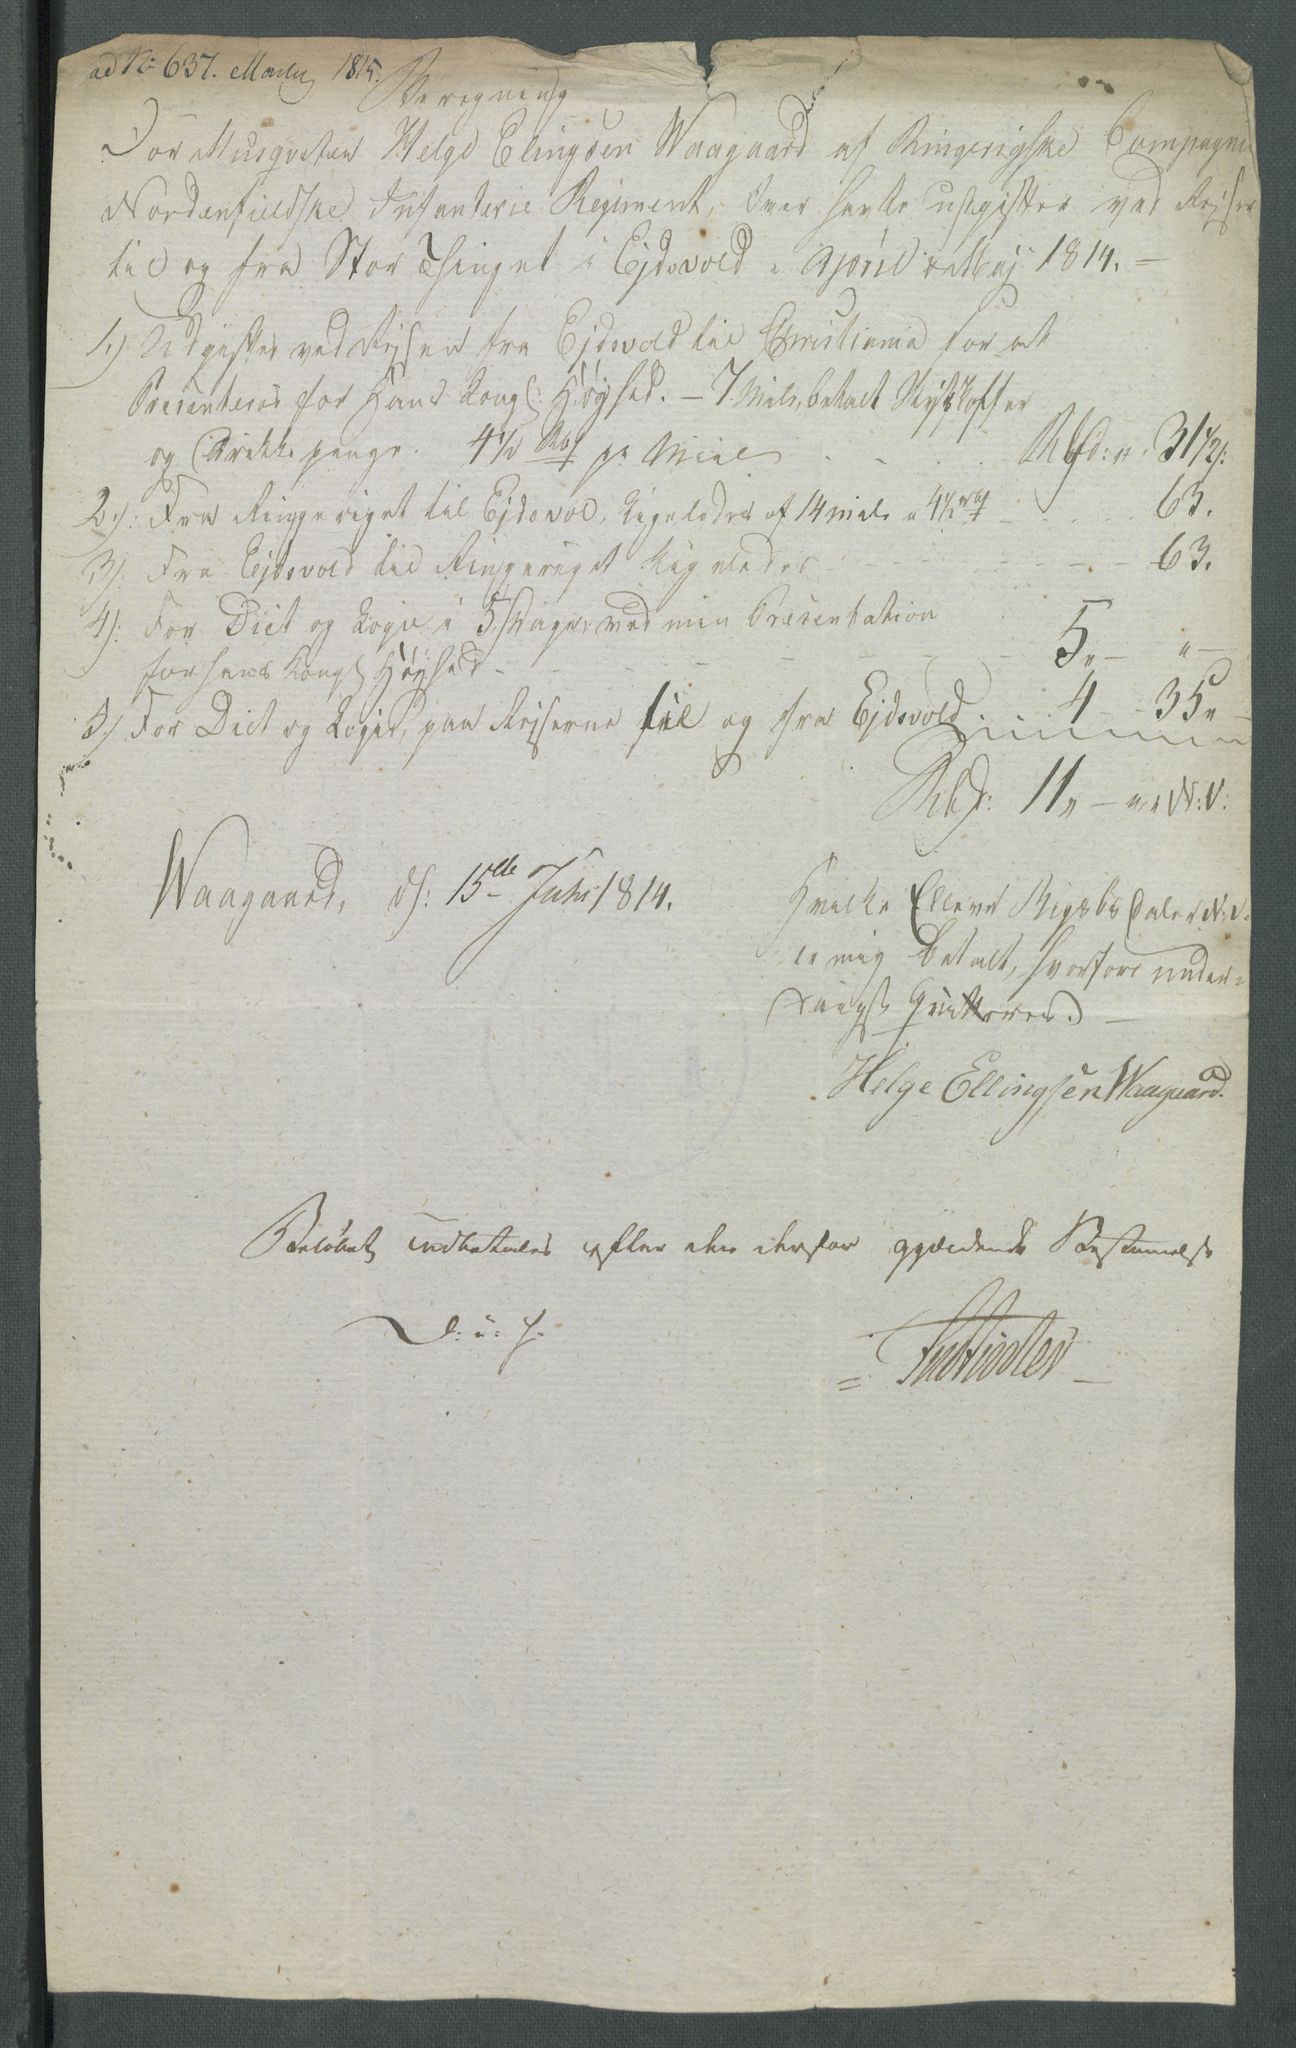 ad No 637. Martz 1815.
Beregning
For Musqueteer Helge Elingsen Waagaard af Ringerigske Compagnie
Nordenfieldske Infanterie Regiment, over havte udgifter ved Rejser
til og fra Stor Thinget i Ejdsvold i April et Maj 1814. —
1.) Udgifter ved Rejsen fra Ejdsvold til Christiania for at
Presenteres for Hans Kongl: Høyhed. — 7 Mile, betalt Skyds
og Drikke penge. 4½ Rbs pr Miil . . . Rbd: " 31½ s:
2.): Fra Ringeriget til Ejdsvol, ligeledes af 14 mile a 4½ rbs . . . 63.
3): Fra Ejdsvold til Ringeriget ligeledes — — — 63.
4): For Diet og Logie i 5 Dage, ved min Præsentation
for hans Kongl Høyhed — — — 5 " — " —
5.) For Diet og Logie, paa Rejserne til og fra Ejdsvold . . . 4 — 35 " —
Rbd: 11 " — " s N: V:
Waagaard, d: 15de Juni 1814.
Hvilke Elleve Rigsbs Daler N: V:
er mig betalt, hvorfore under-
danigst Quitteres. —
Helge Ellingsen Waagaard.
Beløbet indbetales efter den derfor gjældende Bestemmelse
D: u: s: